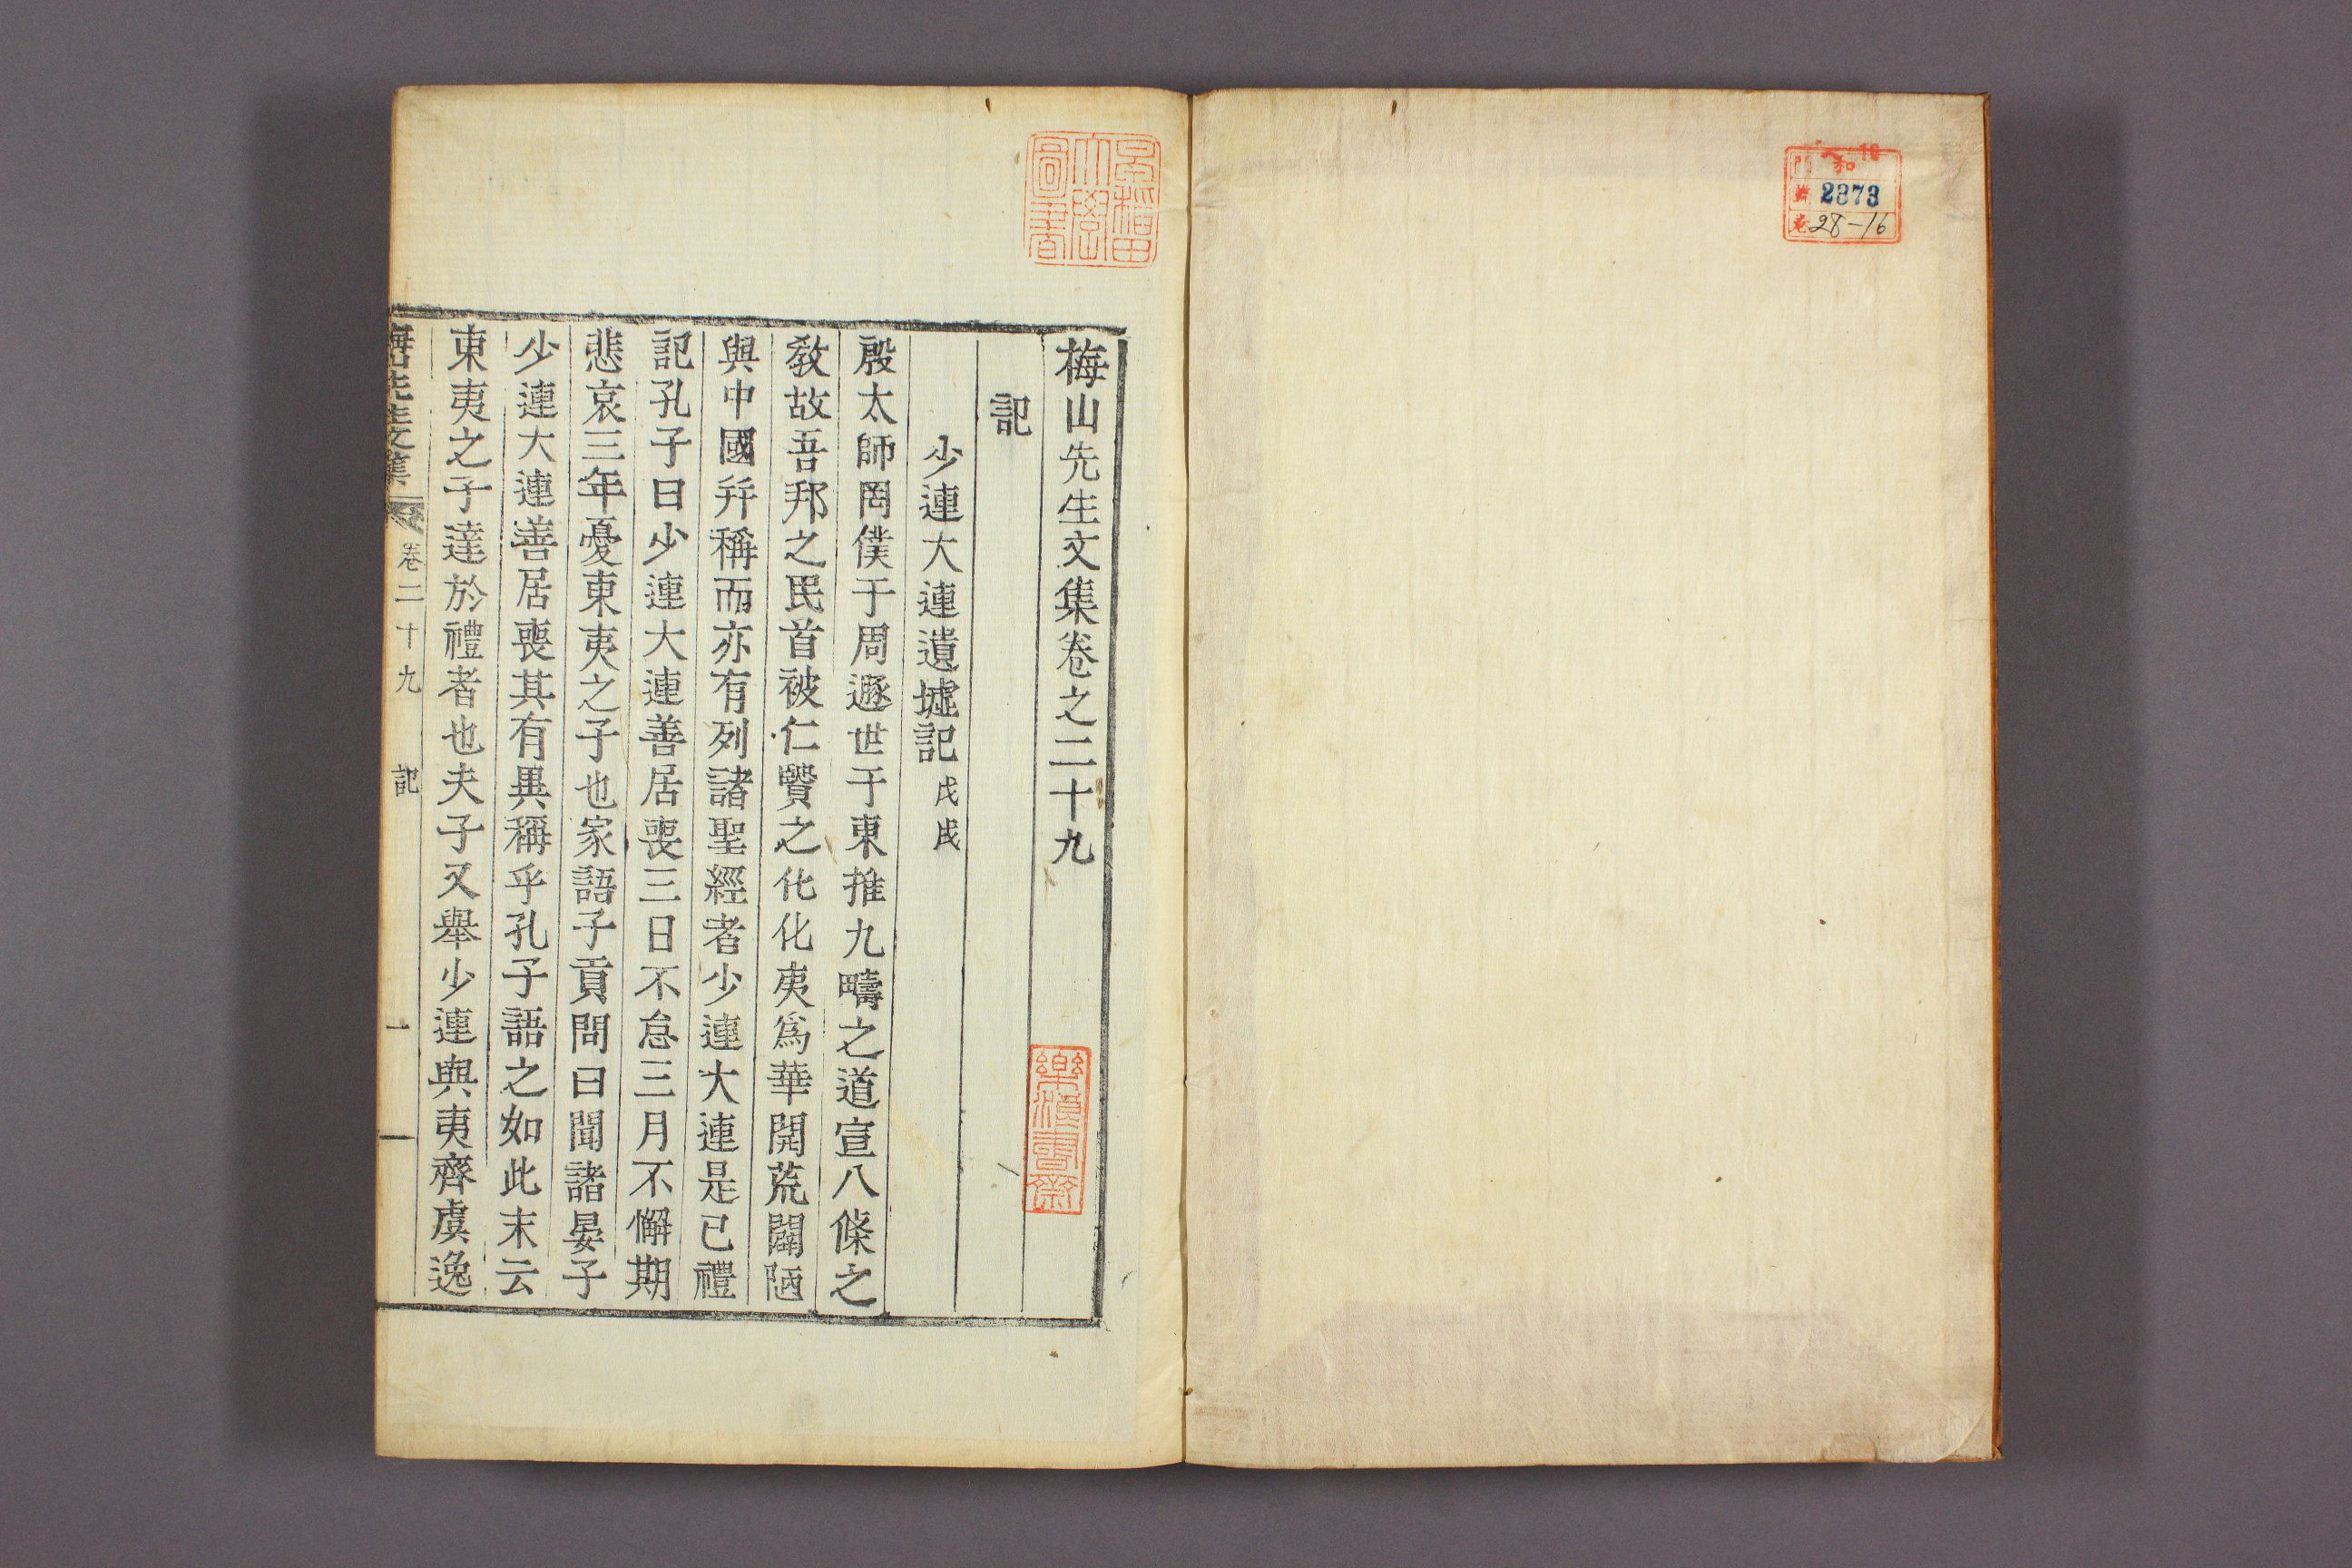 和
2873
28-16
早稻田大學圖書
梅山先生文集卷之二十九
記
少連大連遺墟記 戊戌
殷太師罔僕于周遯世于東推九疇之道宣八條之
教故吾邦之民首被仁贒之化化夷爲華開荒闢陋
與中國幷稱而亦有列諸聖經者少連大連是已禮
記孔子曰少連大連善居喪三日不怠三月不懈期
悲哀三年憂東夷之子也家語子貢問曰聞諸晏子
少連大連善居喪其有異稱乎孔子語之如此末云
東夷之子達於禮者也夫子又舉少連與夷齊虞逸
梅山先生文集 卷二十九 記 一